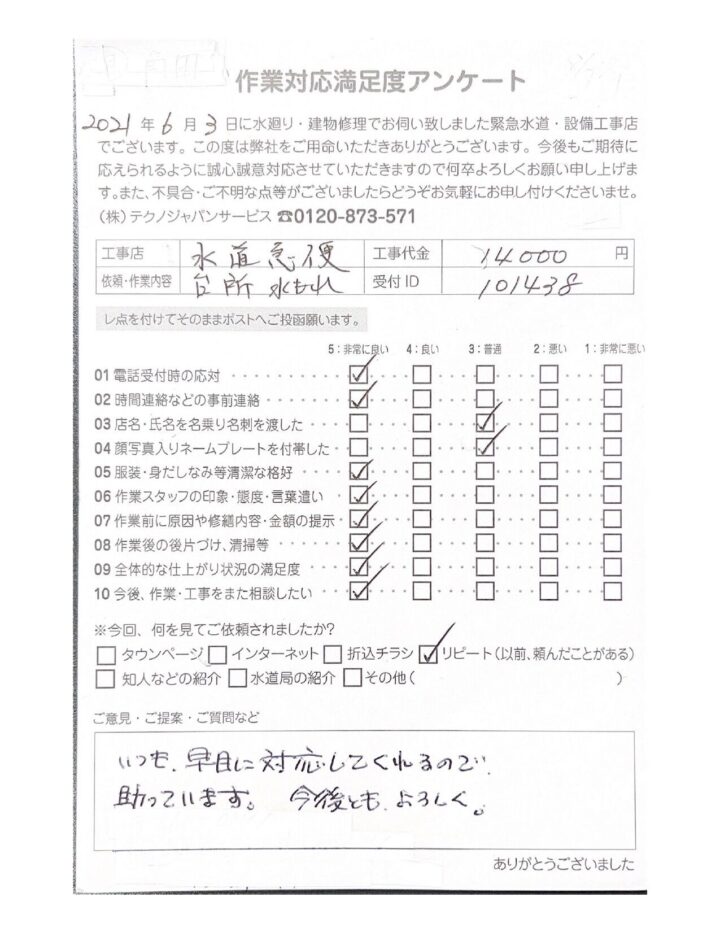 作業対応満足度アンケート
2021年6月3日に水廻り・建物修理でお伺い致しました緊急水道・設備工事店
でございます。この度は弊社をご用命いただきありがとうございます。今後もご期待に
応えられるように誠心誠意対応させていただきますので何卒よろしくお願い申し上げま
す。また、不具合・ご不明な点等がございましたらどうぞお気軽にお申し付けくださいませ。
(株)テクノジャパンサービス ☎0120-873-571
工事店 水道急便 工事代金 14000円
依頼・作業内容 台所 水もれ 受付ID 101438
レ点を付けてそのままポストへご投函願います。
5:非常に良い 4:良い 3:普通 2:悪い 1:非常に悪い
01 電話受付時の応対
02 時間連絡などの事前連絡
03 店名・氏名を名乗り名刺を渡した
04 顔写真入りネームプレートを付帯した
05 服装・身だしなみ等清潔な格好
06 作業スタッフの印象・態度・言葉遣い
07 作業前に原因や修繕内容・金額の提示
08 作業後の後片づけ、清掃等
09 全体的な仕上がり状況の満足度
10 今後、作業・工事をまた相談したい
※今回、何を見てご依頼されましたか?
タウンページ インターネット 折込チラシ リピート(以前、頼んだことがある)
知人などの紹介 水道局の紹介 その他( )
ご意見・ご提案・ご質問など
いつも、早目に対応してくれるので、
助っています。今後とも、よろしく。
ありがとうございました